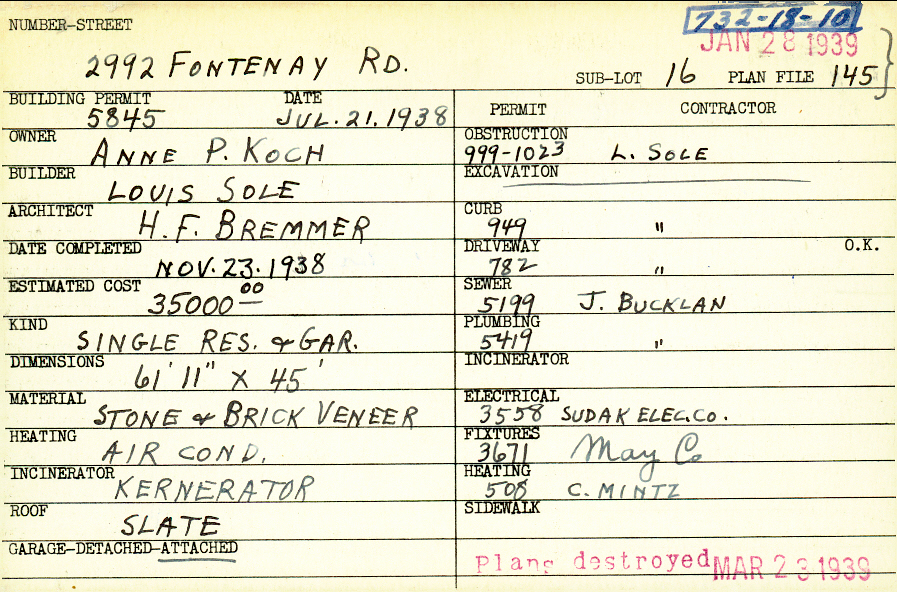 732-18-10
JAN 28 1939
NUMBER-STREET
2992 FONTENAY RD.
SUB-LOT 16 PLAN FILE 145
BUILDING PERMIT DATE
5845 JUL. 21. 1938
OWNER
ANNE P. KOCH
BUILDER
LOUIS SOLE
ARCHITECT
H. F. BREMMER
DATE COMPLETED
NOV. 23. 1938
ESTIMATED COST
35000 00
KIND
SINGLE RES. & GAR.
DIMENSIONS
61' 11" X 45'
MATERIAL
STONE & BRICK VENEER
HEATING
AIR COND.
INCINERATOR
KERNERATOR
ROOF
SLATE
GARAGE-DETACHED-ATTACHED
PERMIT CONTRACTOR
OBSTRUCTION
999-1023 L. SOLE
EXCAVATION
CURB
949 "
DRIVEWAY O.K.
782 "
SEWER
5199 J. BUCKLAN
PLUMBING
5419 "
INCINERATOR
ELECTRICAL
3558 SUDAK ELEC. CO.
FIXTURES
3671 May Co
HEATING
508 C. MINTZ
SIDEWALK
Plans destroyed MAR 23 1939